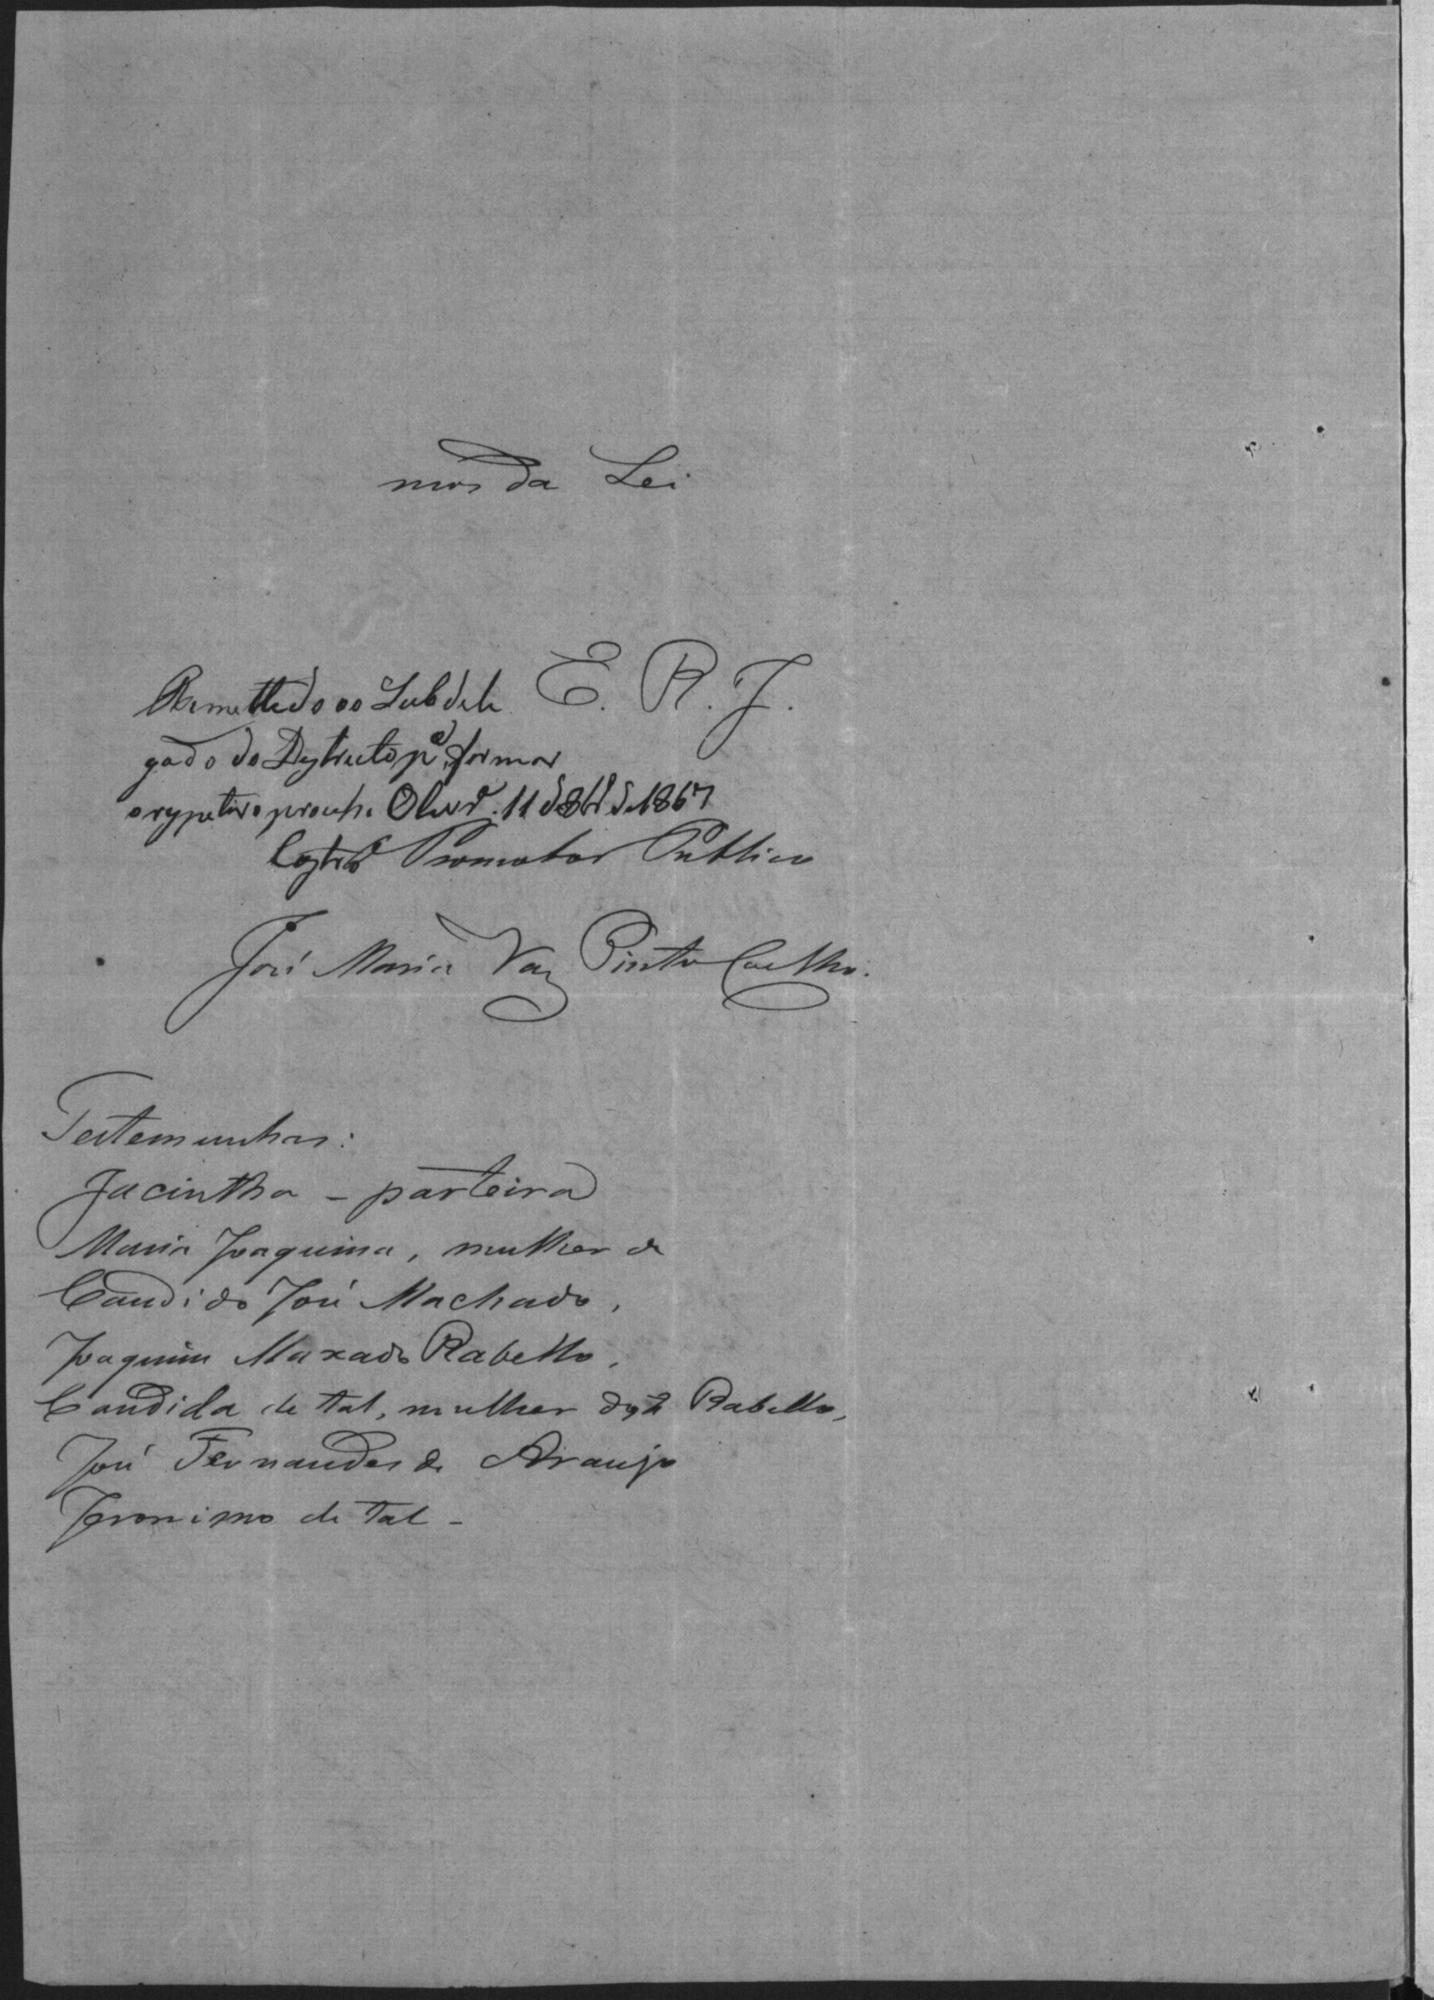 mos da Lei
E. R. J.
Remettido ao Subdele
gado do Dystricto pª formar
o rypetivo processo Olivrª. 11 d 8bro d 1867
Promotor Publico
José Maria Vaz Pinto Coelho.
Testemunhas:
Jacintha – parteira
Maria Joaquina, mulher de
Candido José Machado,
Joaquim Maxado Rabello,
Candida de tal, mulher dyte Rabello,
José Fernandes de Araujo
Jeronimo de tal –